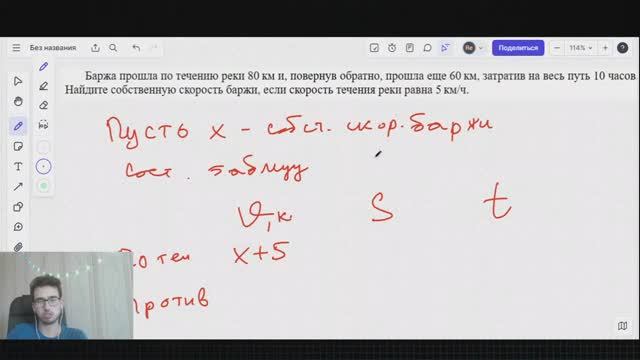 Без названия
Re
Поделиться
114%
Баржа прошла по течению реки 80 км и, повернув обратно, прошла еще 60 км, затратив на весь путь 10 часов.
Найдите собственную скорость баржи, если скорость течения реки равна 5 км/ч.
Пусть x - собст. скор. баржи
сост. таблицу
S t
x+5
против